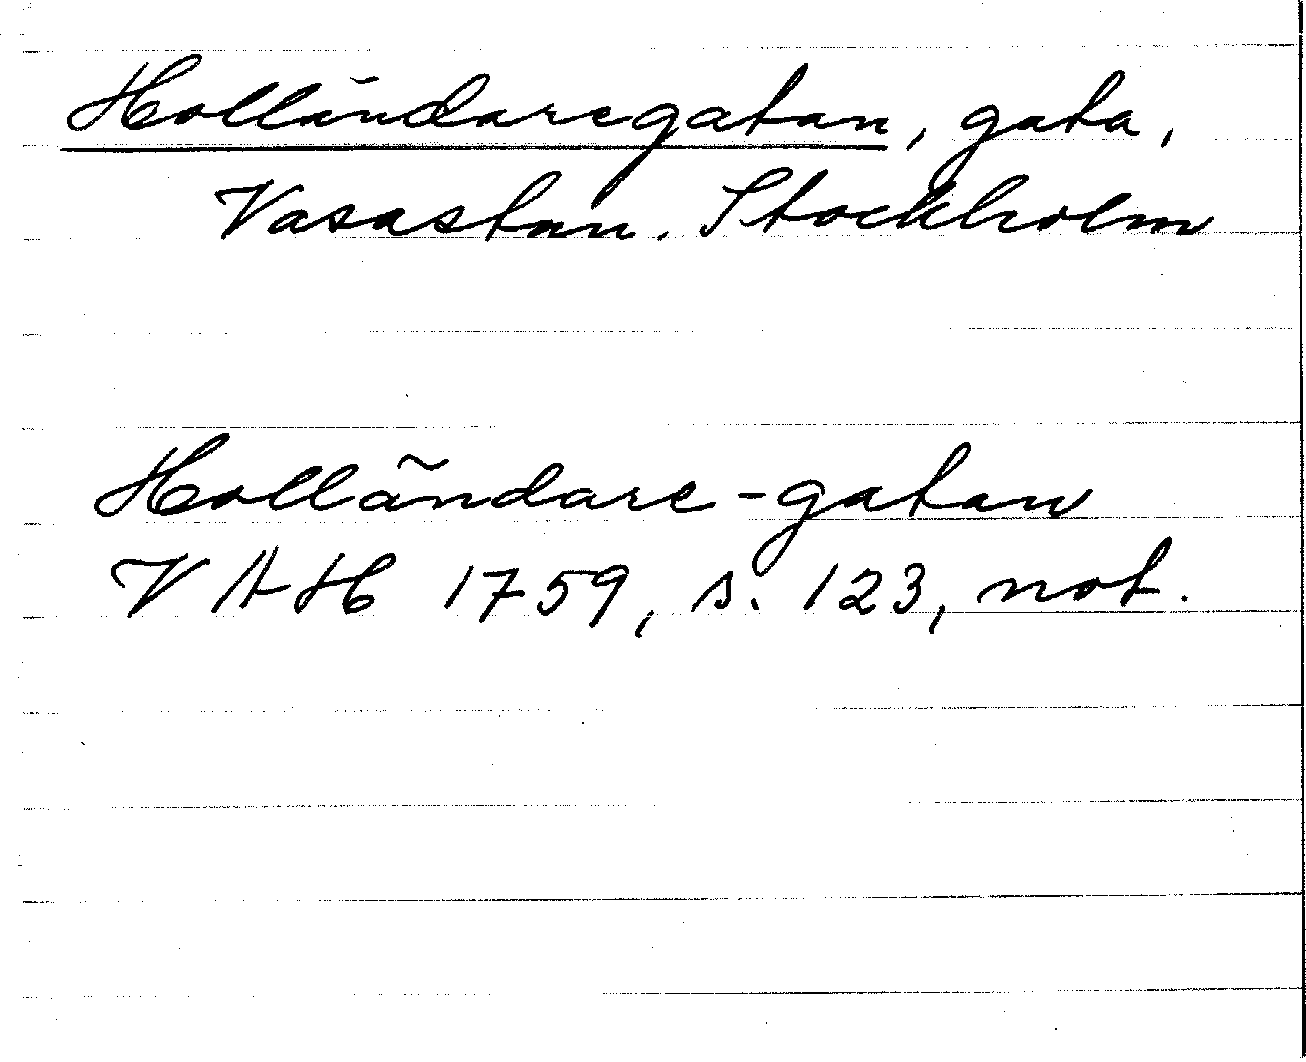 Holländaregatan, gata,
Vasastan. Stockholm
Holländare-gatan
VAH 1759, s. 123, not.